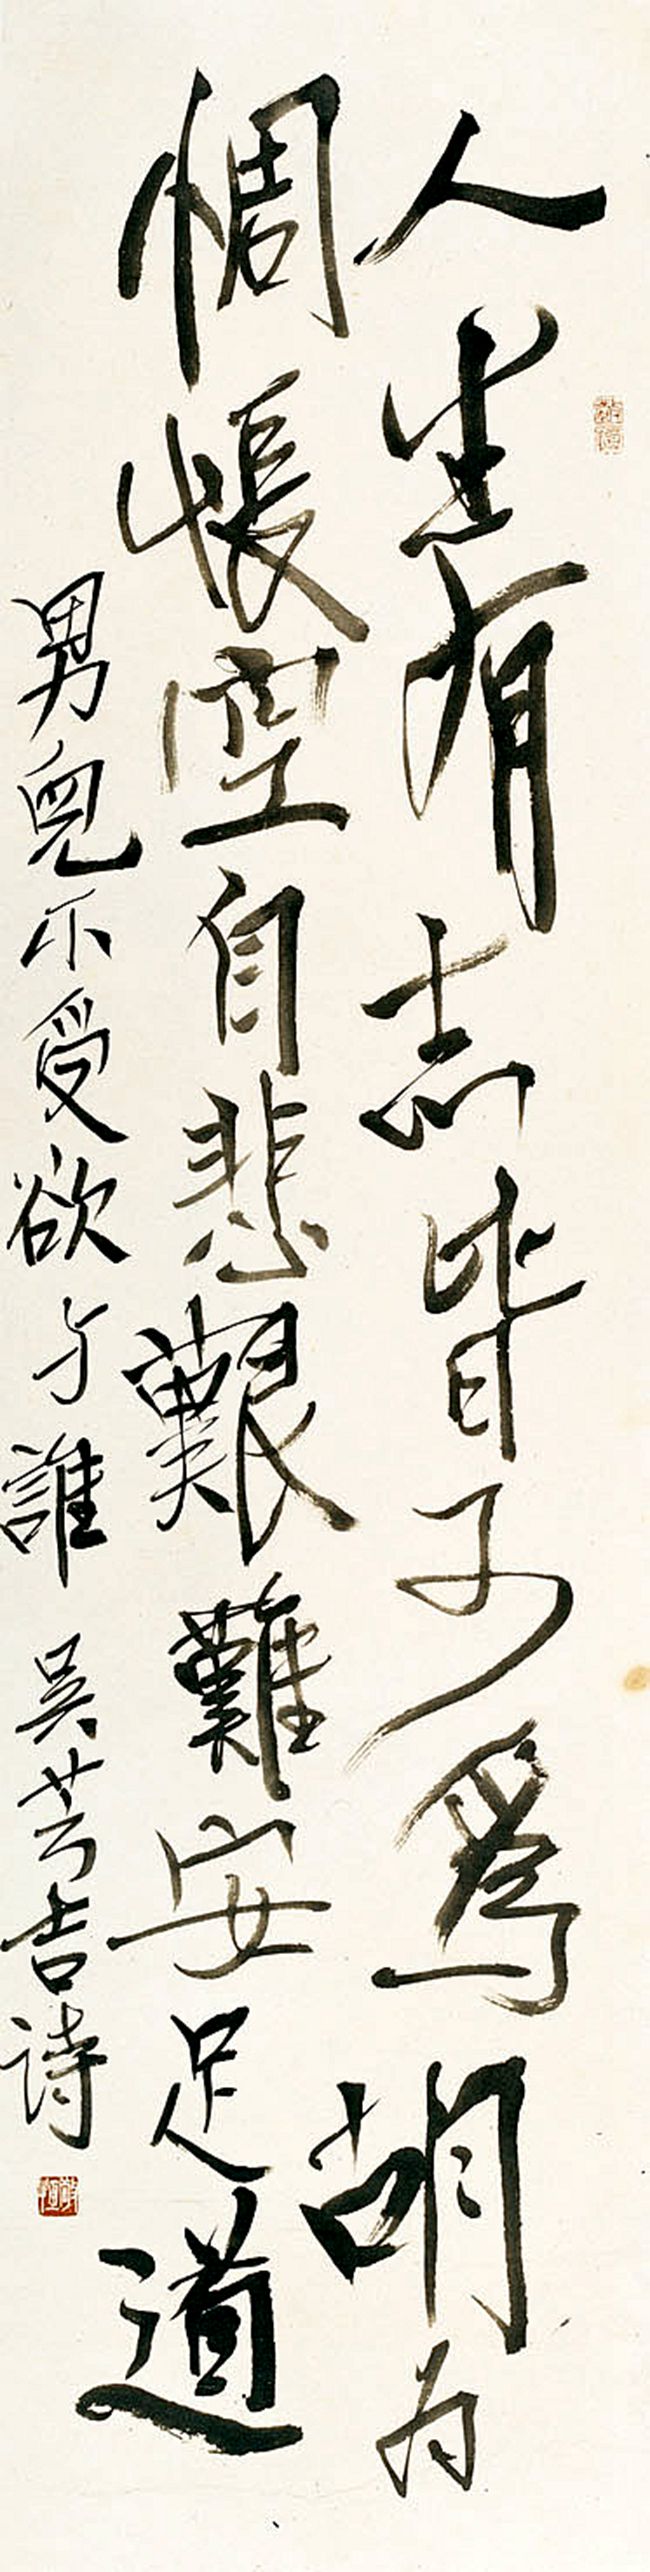 人生有志皆可爲胡为
惆悵空自悲艱難安足道
男兒不受欲方誰 吳芳吉詩